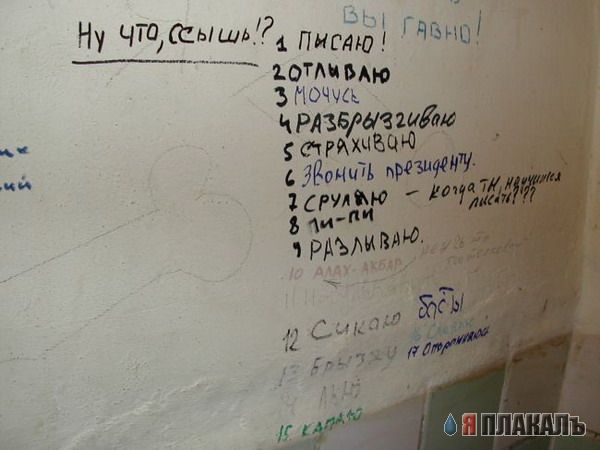 ВЫ ГАВНО!
Ну что, ссышь!?
1 ПЫСАЮ!
2 ОТЛИВАЮ
3 МОЧУСЬ
4 РАЗБРЫЗГИВАЮ
5 СТРАХИВАЮ
6 Звонить президенту.
7 СРУЛЯЮ — КОГДА ТЫ, НАУЧИШСЯ
ПИСАТЬ???
8 ПИ-ПИ
9 РАЗЛИВАЮ.
10 АЛАХ-АКБАР
11
12 Сикаю
13 БРЫЗЖУ
ЛЬЮ
17
15. КАПАЮ
Я ПЛАКАЛЪ